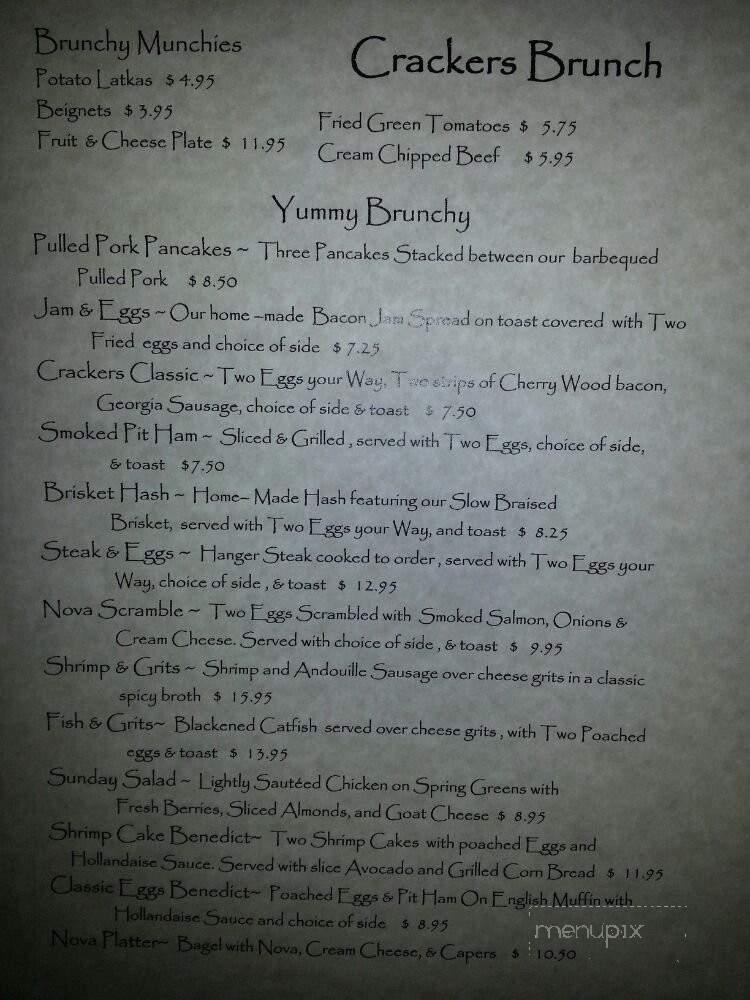 Brunchy Munchies
Crackers Brunch
Potato Latkas $ 4.95
Beignets $ 3.95
Fruit & Cheese Plate $ 11.95
Fried Green Tomatoes $ 5.75
Cream Chipped Beef $ 5.95
Yummy Brunchy
Pulled Pork Pancakes ~ Three Pancakes Stacked between our barbequed
Pulled Pork $ 8.50
Jam & Eggs ~ Our home -made Bacon Jam Spread on toast covered with Two
Fried eggs and choice of side $ 7.25
Crackers Classic ~ Two Eggs your Way, Two strips of Cherry Wood bacon,
Georgia Sausage, choice of side & toast $ 7.50
Smoked Pit Ham ~ Sliced & Grilled , served with Two Eggs, choice of side,
& toast $7.50
Brisket Hash ~ Home- Made Hash featuring our Slow Braised
Brisket, served with Two Eggs your Way, and toast $ 8.25
Steak & Eggs ~ Hanger Steak cooked to order , served with Two Eggs your
Way, choice of side , & toast $ 12.95
Nova Scramble ~ Two Eggs Scrambled with Smoked Salmon, Onions &
Cream Cheese. Served with choice of side , & toast $ 9.95
Shrimp & Grits ~ Shrimp and Andouille Sausage over cheese grits in a classic
spicy broth $ 15.95
Fish & Grits~ Blackened Catfish served over cheese grits , with Two Poached
eggs & toast $ 13.95
Sunday Salad ~ Lightly Sautéed Chicken on Spring Greens with
Fresh Berries, Sliced Almonds, and Goat Cheese $ 8.95
Shrimp Cake Benedict~ Two Shrimp Cakes with poached Eggs and
Hollandaise Sauce. Served with slice Avocado and Grilled Corn Bread $ 11.95
Classic Eggs Benedict~ Poached Eggs & Pit Ham On English Muffin with
Hollandaise Sauce and choice of side $ 8.95
Nova Platter~ Bagel with Nova, Cream Cheese, & Capers $ 10.50
menupix